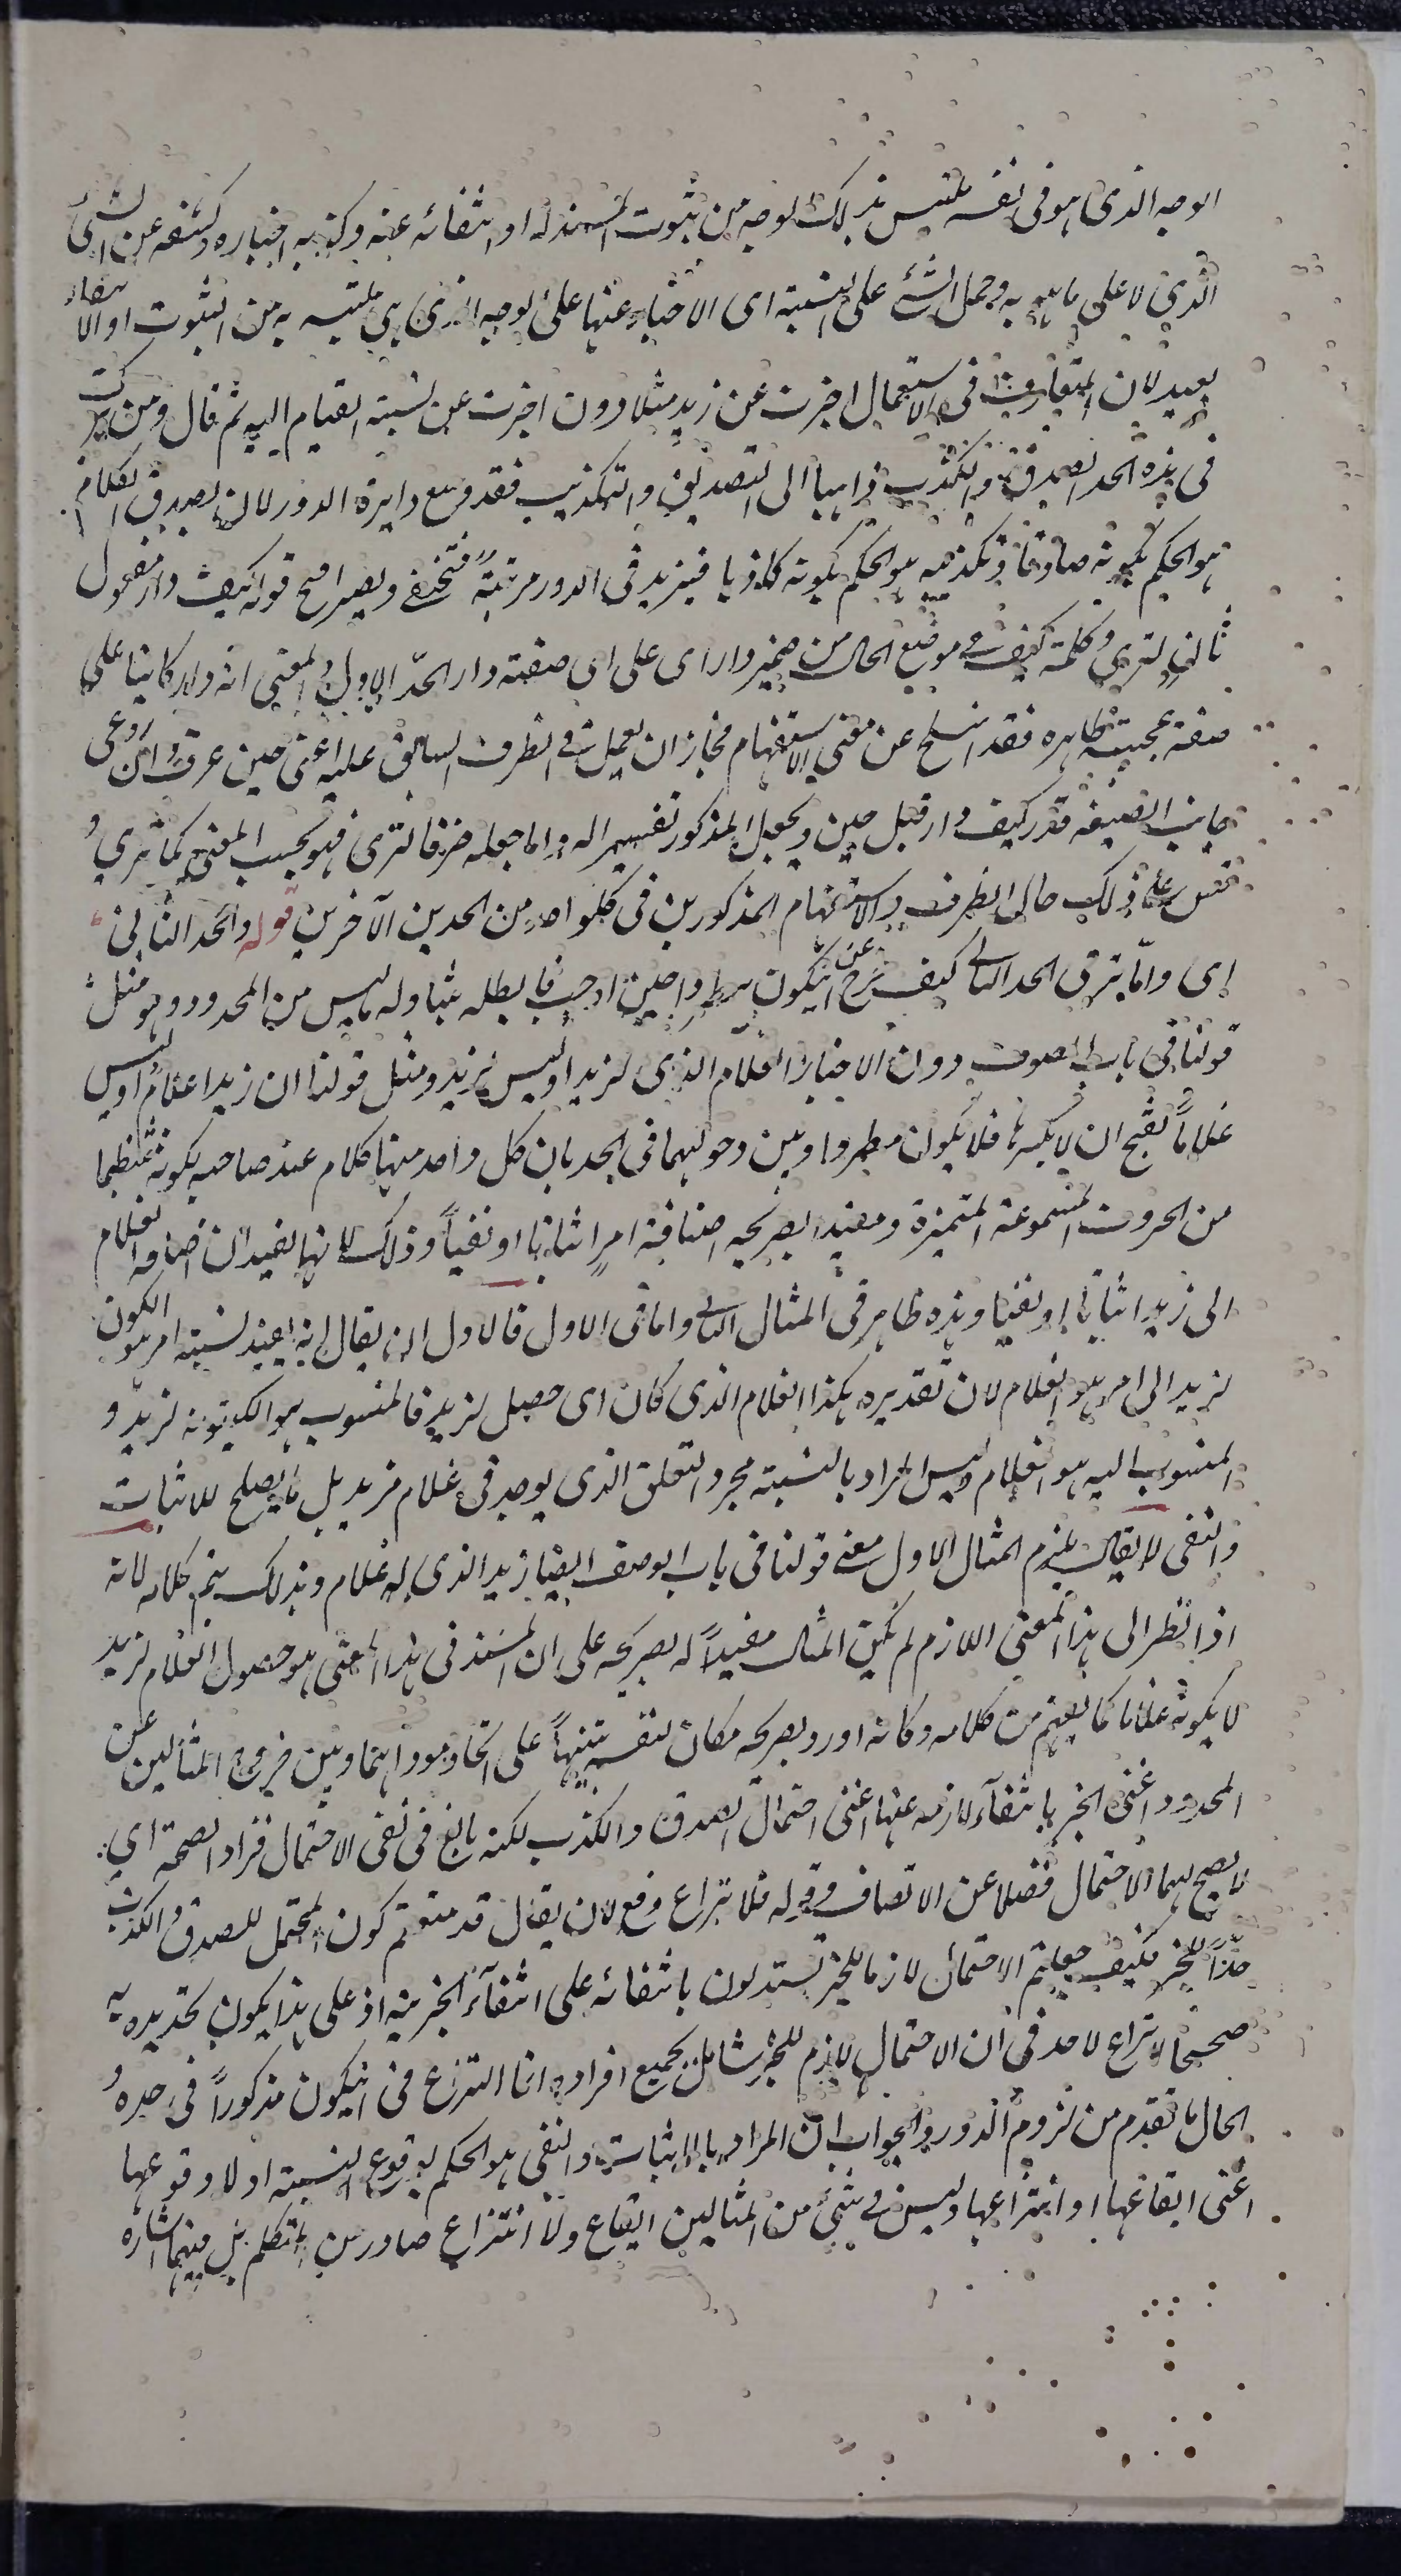 الوجه الذى هو فى نفسه ملتبس بذلك الوجه من ثبوت المسند له او انتفائه عنه وكذبه اخباره وكشفه عن الشئ
الذي لا على ما هو به وحمل الشئ على النسبة اى الاخبار عنها على الوجه الذى هى ملتبسه به من الثبوت او الانتفاء
بعيد لان المتعارف فى الاستعمال اخبرت عن زيد مثلا دون اخبرت عن نسبة القيام اليه ثم قال ومن ترك
فى هذه الحد الصدق والكذب ذاهبا الى التصديق والتكذيب فقد وسع دايرة الدور لان تصديق الكلام
هو الحكم بكونه صادقا وتكذيبه هو الحكم بكونه كاذبا فيزيد فى الدور مرتبة فتخفى ويصير افصح قوله كيف دار مفعول
ثانى لترى وكلمة كيف فى موضع الحال من ضمير دار اى على اى صفة دار الحدّ الاول والمعنى انه دار كاينا على
صفة عجيبة ظاهره فقد انسلخ عن معنى الاستفهام فجاز ان يعمل فى الظرف السابق عليه اعنى حين عرف وان روعى
جانب الصيغه قدر كيف دار قبل حين ويجعل المذكور تفسيرا له واما جعله ظرفا لترى فهو بحسب المعنى كما ترى و
قس على ذلك حال الظرف والاستفهام المذكورين فى كل واحد من الحدين الآخرين قوله والحد الثانى
اى واما ترى الحد الثانى كيف خرج عن ان يكون مطردا حين اوجب فابطله بتناوله ما ليس من المحدود وهو مثل
قولنا فى باب الوصف دون الاخبار الغلام الذى لزيد او ليس لزيد ومثل قولنا ان زيدا غلام او ليس
غلاما بفتح ان لا بكسرها فلا يكون مطردا وبين دخولهما فى الحد بان كل واحد منهما كلام عند صاحبه بكونه منتظما
من الحروف المسموعة المتميزة ومفيدا بصريحه اضافة امر اثباتا او نفيا وذلك لانها يفيد ان اضافة الغلام
الى زيد اثباتا او نفيا وهذه ظاهر فى المثال الثانى واما فى الاول فالاولى ان يقال انه يفيد نسبة امر هو الكون
لزيد الى امر هو الغلام لان تقديره هكذا الغلام الذى كان اى حصل لزيد فالمنسوب هو الكينونه لزيد و
المنسوب اليه هو الغلام وليس المراد بالنسبة مجرد التعلق الذى يوجد فى غلام زيد بل ما يصلح للاثبات
والنفى لا يقال يلزم المثال الاول معنى قولنا فى باب الوصف ايضا زيد الذى له غلام وبذلك يتم كلامه لانه
اذا نظر الى هذا المعنى اللازم لم يكن المثال مفيدا له بصريحه على ان المسند فى هذا المعنى هو حصول الغلام لزيد
لا بكونه غلاما كما يفهم من كلامه وكانه اورد بصريحه مكان لنفسه تنبيها على اتحاد موداهما وبين خروج المثالين عن
المحدود اعنى الخبر بانتفاء لازمه عنها اعنى احتمال الصدق والكذب لكنه بالغ فى نفى الاحتمال فزاد الصحة اي
لا يصح لهما الاحتمال فضلا عن الاتصاف وقوله فلا نزاع دفع لان يقال قد منعتم كون المحتمل للصدق والكذب
حدّا للخبر فكيف جعلتم الاحتمال لازما للخبر تستدلون بانتفائه على انتفاء الخبرية اذ على هذا يكون تحديده به
صحيحا لا نزاع لاحد فى ان الاحتمال لازم للخبر شامل بجميع افراده انما النزاع فى ان يكون مذكورا فى حده و
الحال ما تقدم من لزوم الدور والجواب ان المراد بالاثبات والنفى هو الحكم بوقوع النسبة اولا وقوعها
اعنى ايقاعها او انتزاعها وليس فى شئ من المثالين ايقاع ولا انتزاع صادر من المتكلم بل فيهما اشاره